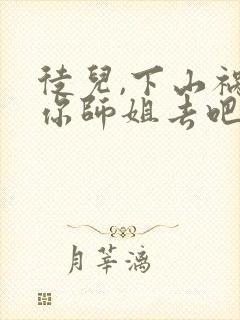 徒兒,下山禍
你師姐去吧
月莘漓